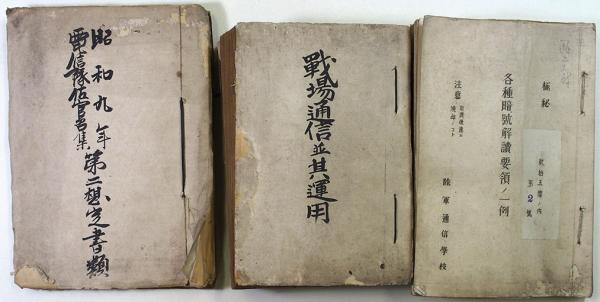 昭和九年
電信隊佐官召集
第二想定書類
戰場通信並其運用
極秘
各種暗號解讀要領ノ一例
注意
陸軍通信學校
第2號